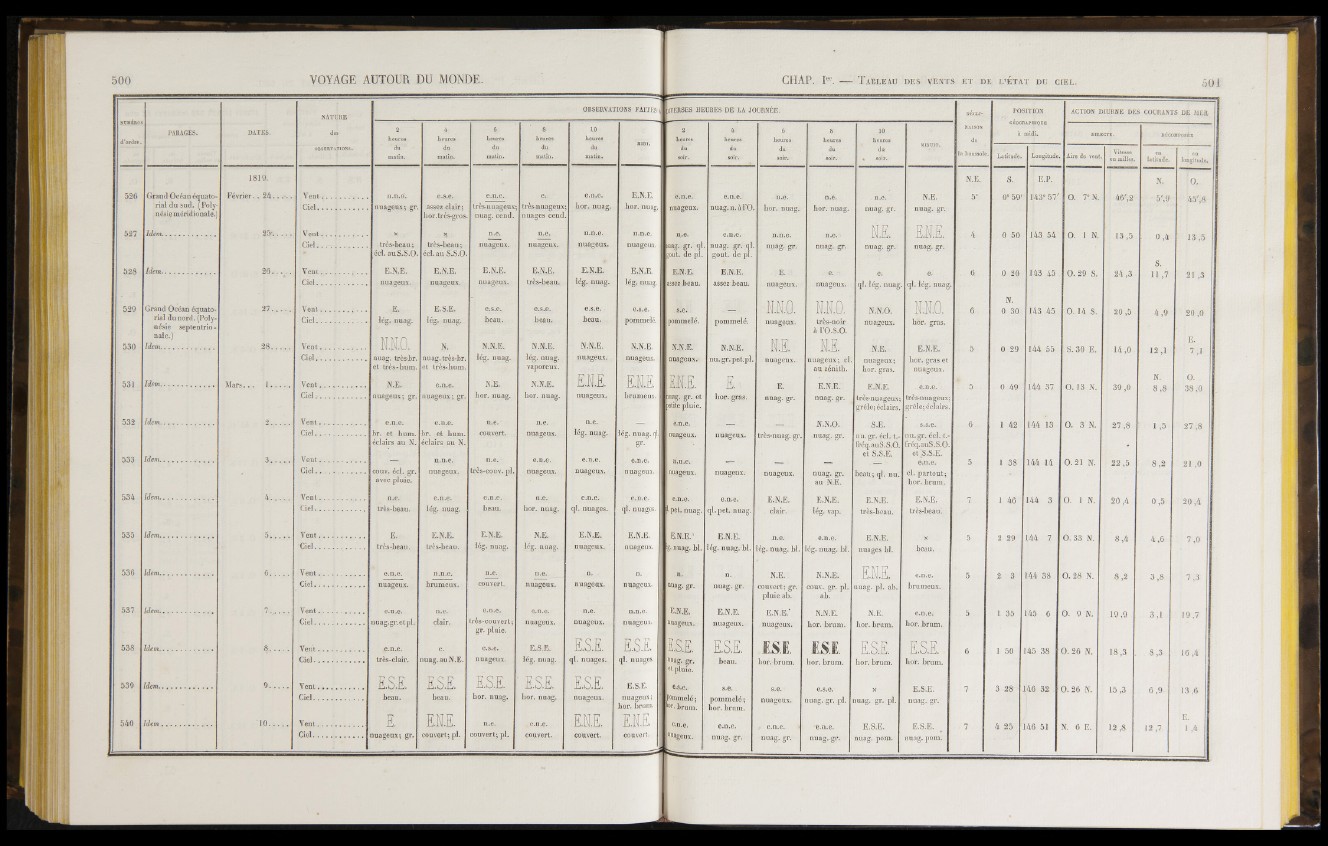 500 VOYAGE AUTOUR DU MONDE.
CHAP. Ier. — TABLEAU DES VENTS ET DE L'ÉTAT DU CIEL. 501
NUMÉROS d'ordre. PARAGES. DATES. NATURE des OBSERVATIONS. OBSERVATIONS FAITES À DIVERSES HEURES DE LA JOURNÉE.
2 heures du matin. 4 heures du matin. 6 heures du matin. 8 heures du matin. 10 heures du matin. MIDI.
2 heures du soir. 6 heures du soir. 8 heures du soir. 10 heures du soir. MINUIT.
POSITION GÉOGRAPHIQUE à midi. Latitude. Longitude.
ACTION DIURNE DES COURANTS DE MER DIRECTE. Aire de vent. Vitesse en milles. en latitude. en longitude.
1819. N.E. S. E.P. N. O.
526 Grand Océan équatorial du sud. (Polynésie méridionale.) Février.. 24
Vent n.n.e. e.s.e. e.n.e. e. e.n.e. E.N.E. e.n.e. e.n.e. n.e. n.e. n.e. N.E. 5° 0° 59' 143° 57' O. 7° N. 46',2 5',9 45',8
Ciel nuageux; gr. assez clair; hor.très-gros. très-nuageux; nuag. cend. très-nuageux; nuages cend. hor. nuag. hor. nuag. nuageux. nuag.n.à l'O. hor. nuag. hor. nuag. nuag. gr. nuag. gr.
527 Idem 25
Vent × × n.e. n.e. n.n.e. n.n.e. n.e. e.n.e. n.n.e. n.e. N.E. E.N.E. 4 0 50 143 54 O. 1 N. 13,5 0,4 13,5
Ciel très-beau; écl. au S.S.O. très-beau; écl. au S.S.O. nuageux. nuageux. nuageux. nuageux. nuag. gr. ql. gout. de pl. nuag. gr. ql. gout. de pl. nuag. gr. nuag. gr. nuag. gr. nuag. gr.
S.
528 Idem 26
Vent E.N.E. E.N.E. E.N.E. E.N.E. E.N.E. E.N.E. E.N.E. E.N.E. E. e. e. e. 6 0 20 143 45 O. 29 S. 24,3 11,7 21,3
Ciel nuageux. nuageux. nuageux. très-beau. lég. nuag. lég. nuag. assez beau. assez beau. nuageux. nuageux. ql. lég. nuag. ql. lég. nuag.
N.
529 Grand Océan équatorial du nord. (Polynésie septentrionale.) 27
Vent E. E.S.E. e.s.e. e.s.e. e.s.e. e.s.e. s.e. — N.N.O. N.N.O. N.N.O. N.N.O. 6 0 30 143 45 O. 14 S. 20,5 4,9 20,0
Ciel lég. nuag. lég. nuag. beau. beau. beau. pommelé. pommelé. pommelé. nuageux. très-noir à l'O.S.O. nuageux. hor. gras.
E.
530 Idem 28
Vent N.N.O. N. N.N.E. N.N.E. N.N.E. N.N.E. N.N.E. N.N.E. N.E. N.E. N.E. E.N.E. 5 0 29 144 55 S. 30 E. 14,0 12,1 7,1
Ciel nuag. très-br. et très-hum. nuag. très-br. et très-hum. lég. nuag. lég. nuag. vaporeux. nuageux. nuageux. nuageux. nu.gr.pet.pl. nuageux. nuageux; cl. au zénith. nuageux; hor. gras. hor. gras et nuageux.
N. O.
531 Idem Mars... 1
Vent N.E. n.n.e. N.E. N.N.E. E.N.E. E.N.E. E.N.E. E. E. E.N.E. E.N.E. e.n.e. 5 0 49 144 37 O. 13 N. 39,0 8,8 38,0
Ciel nuageux; gr. nuageux; gr. hor. nuag. hor. nuag. nuageux. brumeux. nuag. gr. et petite pluie. hor. gras. nuag. gr. nuag. gr. très-nuageux; grêle; éclairs. très-nuageux; grêle; éclairs.
532 Idem 2
Vent e.n.e. e.n.e. n.e. n.e. n.e. — e.n.e. — — N.N.O. S.E. e.s.e. 6 1 42 144 13 O. 3 N. 27,8 1,5 27,8
Ciel br. et hum. éclairs au N. br. et hum. éclairs au N. couvert. nuageux. lég. nuag. lég. nuag. gr. nuageux. nuageux. très-nuag. gr. nuag. gr. nu. gr. écl. t.-fréq. au S.S.O. et S.S.E. nu. gr. écl. t.-fréq. au S.S.O. et S.S.E.
533 Idem 3
Vent — n.n.e. n.e. e.n.e. e.n.e. e.n.e. n.n.e. — — — — e.n.e. 5 1 38 144 14 O. 21 N. 22,5 8,2 21,0
Ciel couv. écl. gr. avec pluie. nuageux. très-couv. pl. nuageux. nuageux. nuageux. nuageux. nuageux. nuageux. nuag. gr. au N.E. beau; ql. nu. cl. partout; hor. brum.
534 Idem 4
Vent n.e. e.n.e. e.n.e. n.e. e.n.e. e.n.e. e.n.e. e.n.e. E.N.E. E.N.E. E.N.E. E.N.E. 7 1 46 144 3 O. 1 N. 20,4 0,5 20,4
Ciel très-beau. lég. nuag. beau. hor. nuag. ql. nuages. ql. nuages. ql.pet. nuag. ql.pet. nuag. clair. lég. vap. très-beau. très-beau.
535 Idem 5
Vent E. E.N.E. E.N.E. N.E. E.N.E. E.N.E. E.N.E. E.N.E. n.e. e.n.e. E.N.E. × 5 2 29 144 7 O. 33 N. 8,4 4,6 7,0
Ciel très-beau. très-beau. lég. nuag. lég. nuag. nuageux. nuageux. lég. nuag. bl. lég. nuag. bl. lég. nuag. bl. lég. nuag. bl. nuages bl. beau.
536 Idem 6
Vent e.n.e. n.n.e. n.e. n.e. n. n. n. n. N.E. N.N.E. E.N.E. e.n.e. 5 2 3 144 38 O. 28 N. 8,2 3,8 7,3
Ciel nuageux. brumeux. couvert. nuageux. nuageux. nuageux. nuag. gr. nuag. gr. couvert; gr. pluie ab. couv. gr. pl. ab. nuag. pl. ab. brumeux.
537 Idem 7
Vent e.n.e. n.e. e.n.e. e.n.e. n.e. n.n.e. E.N.E. E.N.E. E.N.E. N.N.E. N.E. e.n.e. 5 1 35 145 6 O. 9 N. 19,9 3,1 19,7
Ciel nuag.gr.et pl. clair. très-couvert; gr. pluie. nuageux. nuageux. nuageux. nuageux. nuageux. nuageux. hor. brum. hor. brum. hor. brum.
538 Idem 8
Vent e.n.e. e. e.s.e. E.S.E. E.S.E. E.S.E. E.S.E. E.S.E. E.S.E. E.S.E. E.S.E. E.S.E. 6 1 50 145 38 O. 26 N. 18,3 8,3 16,4
Ciel très-clair. nuag. au N.E. nuageux. lég. nuag. ql. nuages. ql. nuages. nuag. gr. et pluie. beau. hor. brum. hor. brum. hor. brum. hor. brum.
539 Idem 9
Vent E.S.E. E.S.E. E.S.E. E.S.E. E.S.E. E.S.E. e.s.e. s.e. s.e. e.s.e. × E.S.E. 7 3 28 146 32 O. 26 N. 15,3 6,9 13,6
Ciel beau. beau. hor. nuag. hor. nuag. nuageux. nuageux; hor. brum. pommelé; hor. brum. pommelé; hor. brum. nuageux. nuag. gr. pl. nuag. gr. pl. nuag. gr.
E.
540 Idem 10
Vent E. E.N.E. n.e. e.n.e. E.N.E. E.N.E. e.n.e. e.n.e. e.n.e. e.n.e. E.S.E. E.S.E. 7 4 25 146 51 N. 6 E. 12,8 12,7 1,4
Ciel nuageux; gr. couvert; pl. couvert; pl. couvert. couvert. couvert. nuageux. nuag. gr. nuag. gr. nuag. gr. nuag. pom. nuag. pom.